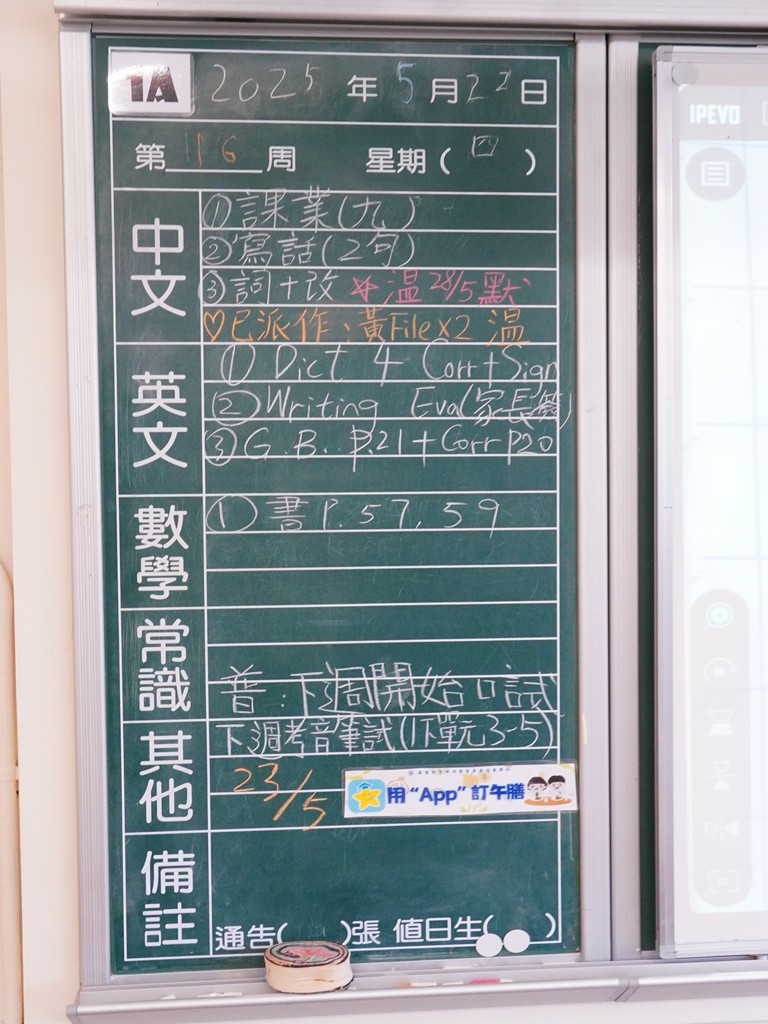 1A 2025 年 5 月 22 日
第 16 周 星期 ( 四 )
中文
①課業(九)
②寫話(2句)
③詞+改 *溫28/5默
♡已派作:黃File X2 溫
英文
① Dict 4 Corr+Sign
② Writing Eva(家長簽)
③ G.B. p.21 + Corr p20
數學
① 書 P.57, 59
常識
普:下週開始口試
其他
下週考音筆試(1下單元3-5)
23/5
用 “App” 訂午膳
備註
通告( )張 值日生( )
IPEVO